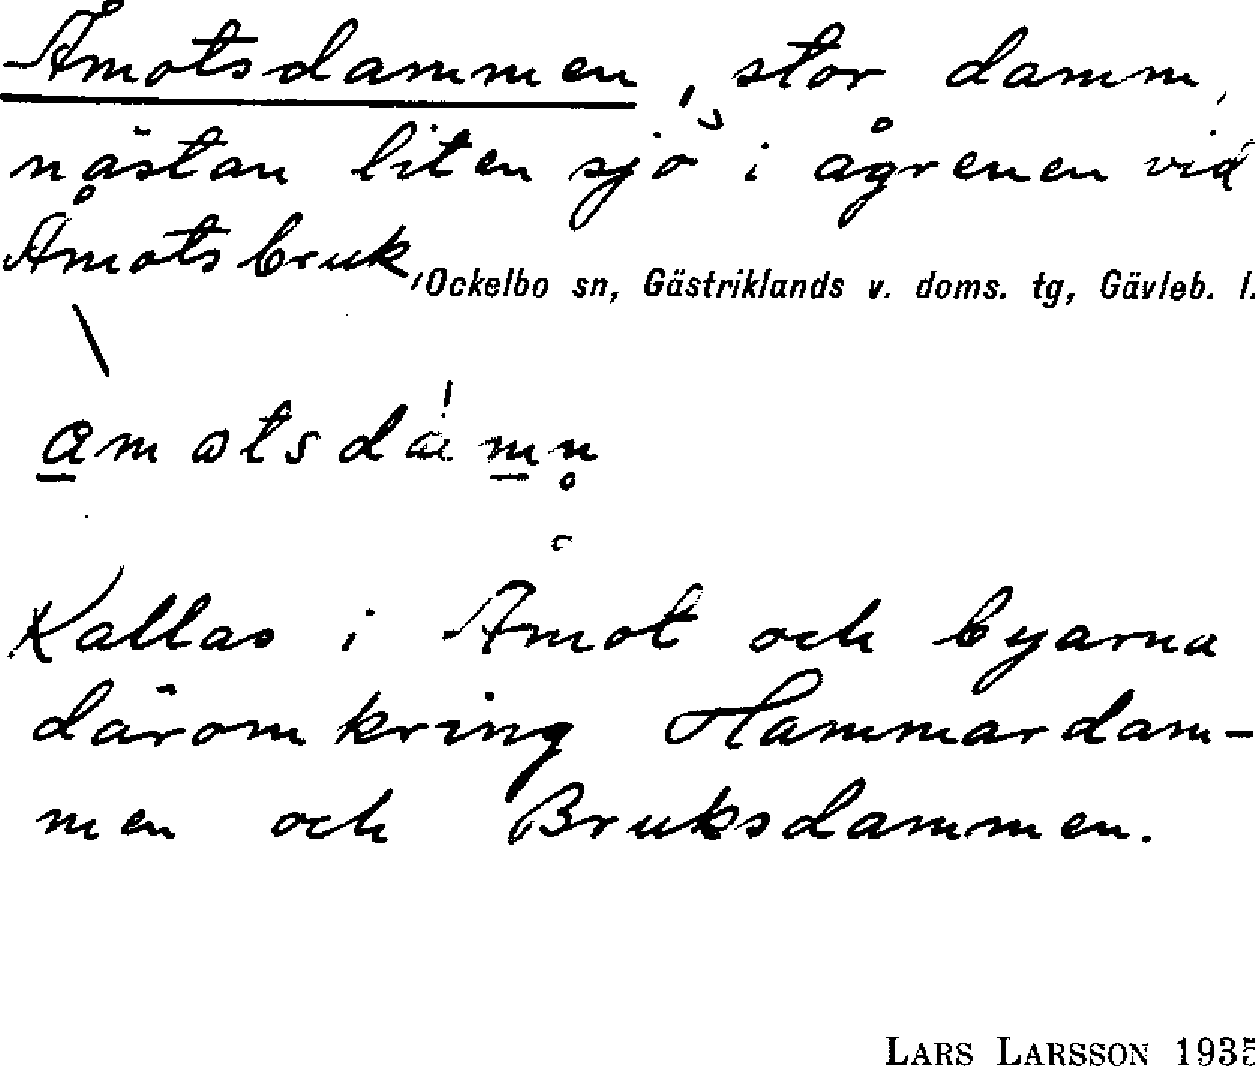 Åmotsdammen, stor damm,
nästan liten sjö i ågrenen vid
Åmotsbruk, Ockelbo sn, Gästriklands v. doms. tg, Gävleb. l.
Kallas i Åmot och byarna
däromkring Hammardam-
men och Bruksdammen.
LARS LARSSON 1935